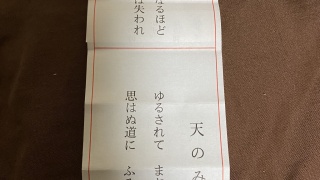 なるほど
は失われ
天のみ
ゆるされて ま
思はぬ道に ふ